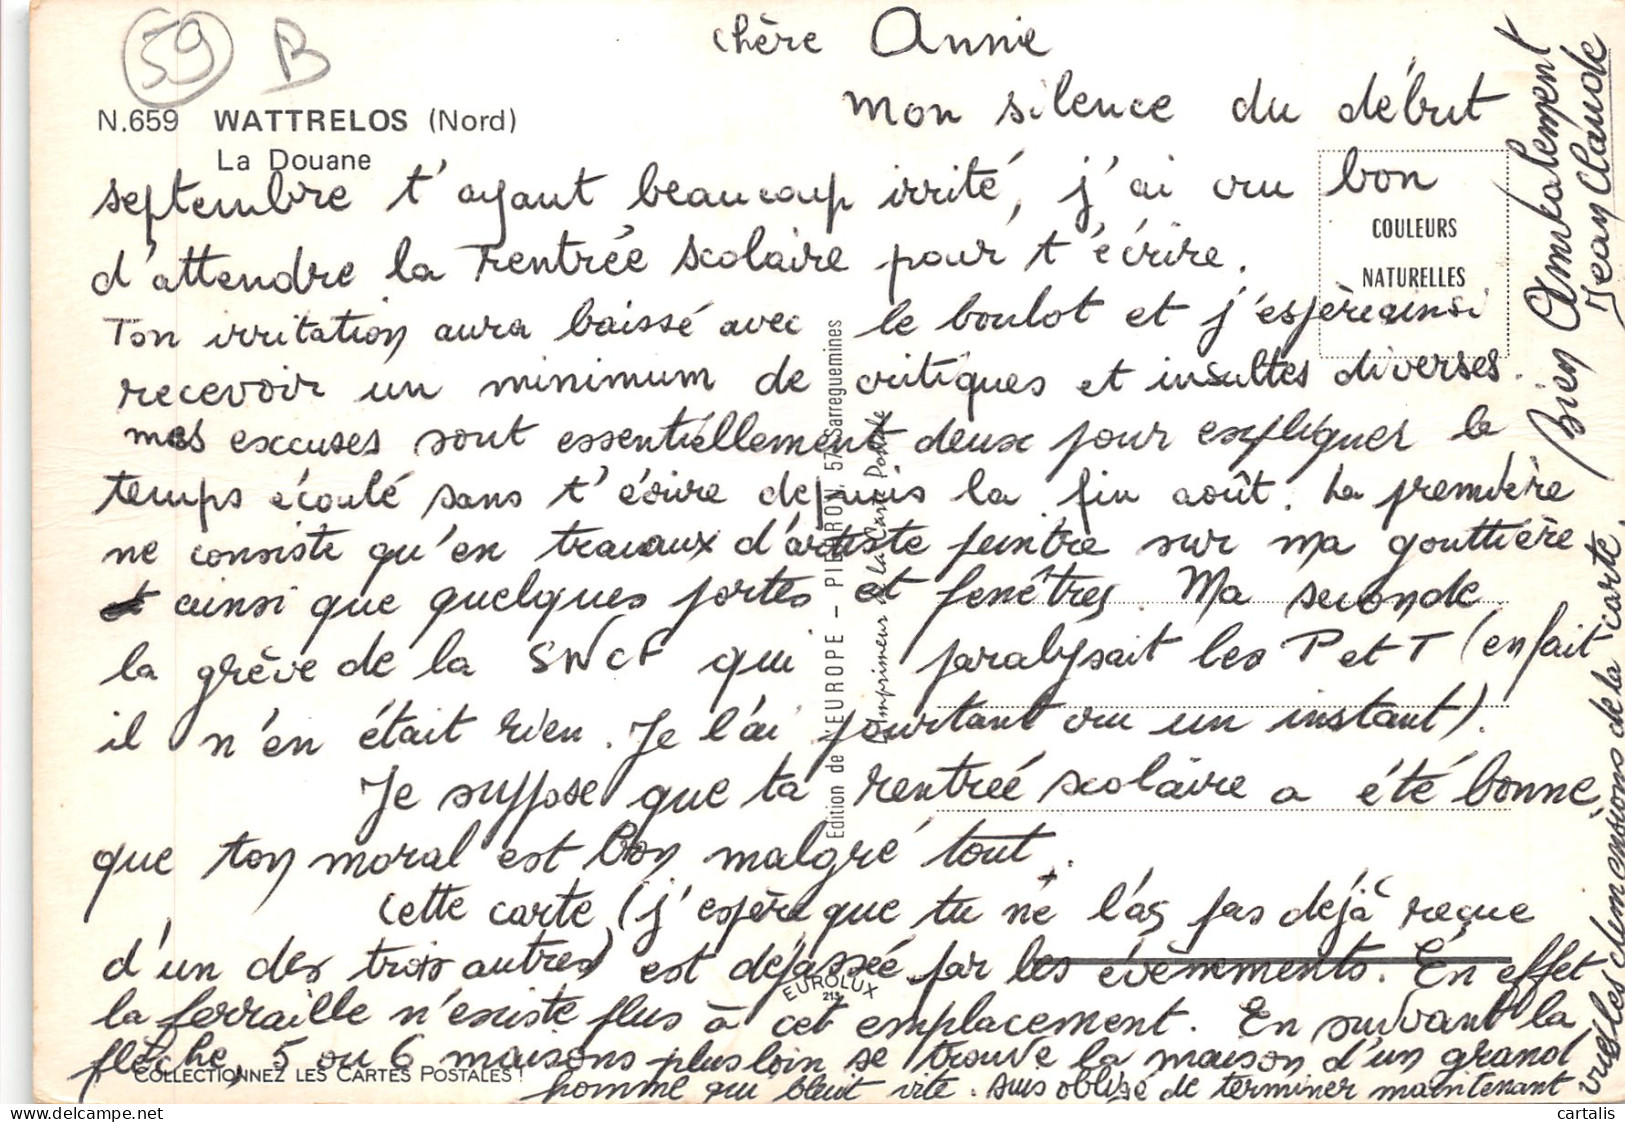 59 B
chère Annie
N.659 WATTRELOS (Nord)
La Douane
mon silence du début
septembre t'ayant beaucoup irrité, j'ai cru bon
d'attendre la rentrée scolaire pour t'écrire.
COULEURS
NATURELLES
Ton irritation aura baissé avec le boulot et j'espère ainsi
recevoir un minimum de critiques et insultes diverses.
mes excuses sont essentiellement deux pour expliquer le
temps écoulé sans t'écrire depuis la fin août. La première
ne consiste qu'en travaux d'artiste peintre sur ma gouttière
ainsi que quelques portes et fenêtres. Ma seconde
la grève de la SNCF qui paralysait les P et T (en fait
il n'en était rien. Je l'ai pourtant cru un instant).
Je suppose que ta rentrée scolaire a été bonne,
que ton moral est bon malgré tout.
Cette carte (j'espère que tu ne l'as pas déjà reçue
d'un des trois autres) est dépassée par les évènements. En effet
la ferraille n'existe plus à cet emplacement. En suivant la
flèche, 5 ou 6 maisons plus loin se trouve la maison d'un grand
homme qui bleuit vite. Suis obligé de terminer maintenant
vues les dimensions de la carte.
Bien Amicalement
Jean Claude
Edition de l'EUROPE - PIERRON, 57-Sarreguemines
L'Imprimeur de la Carte Postale
EUROLUX
213
COLLECTIONNEZ LES CARTES POSTALES !
cartalis